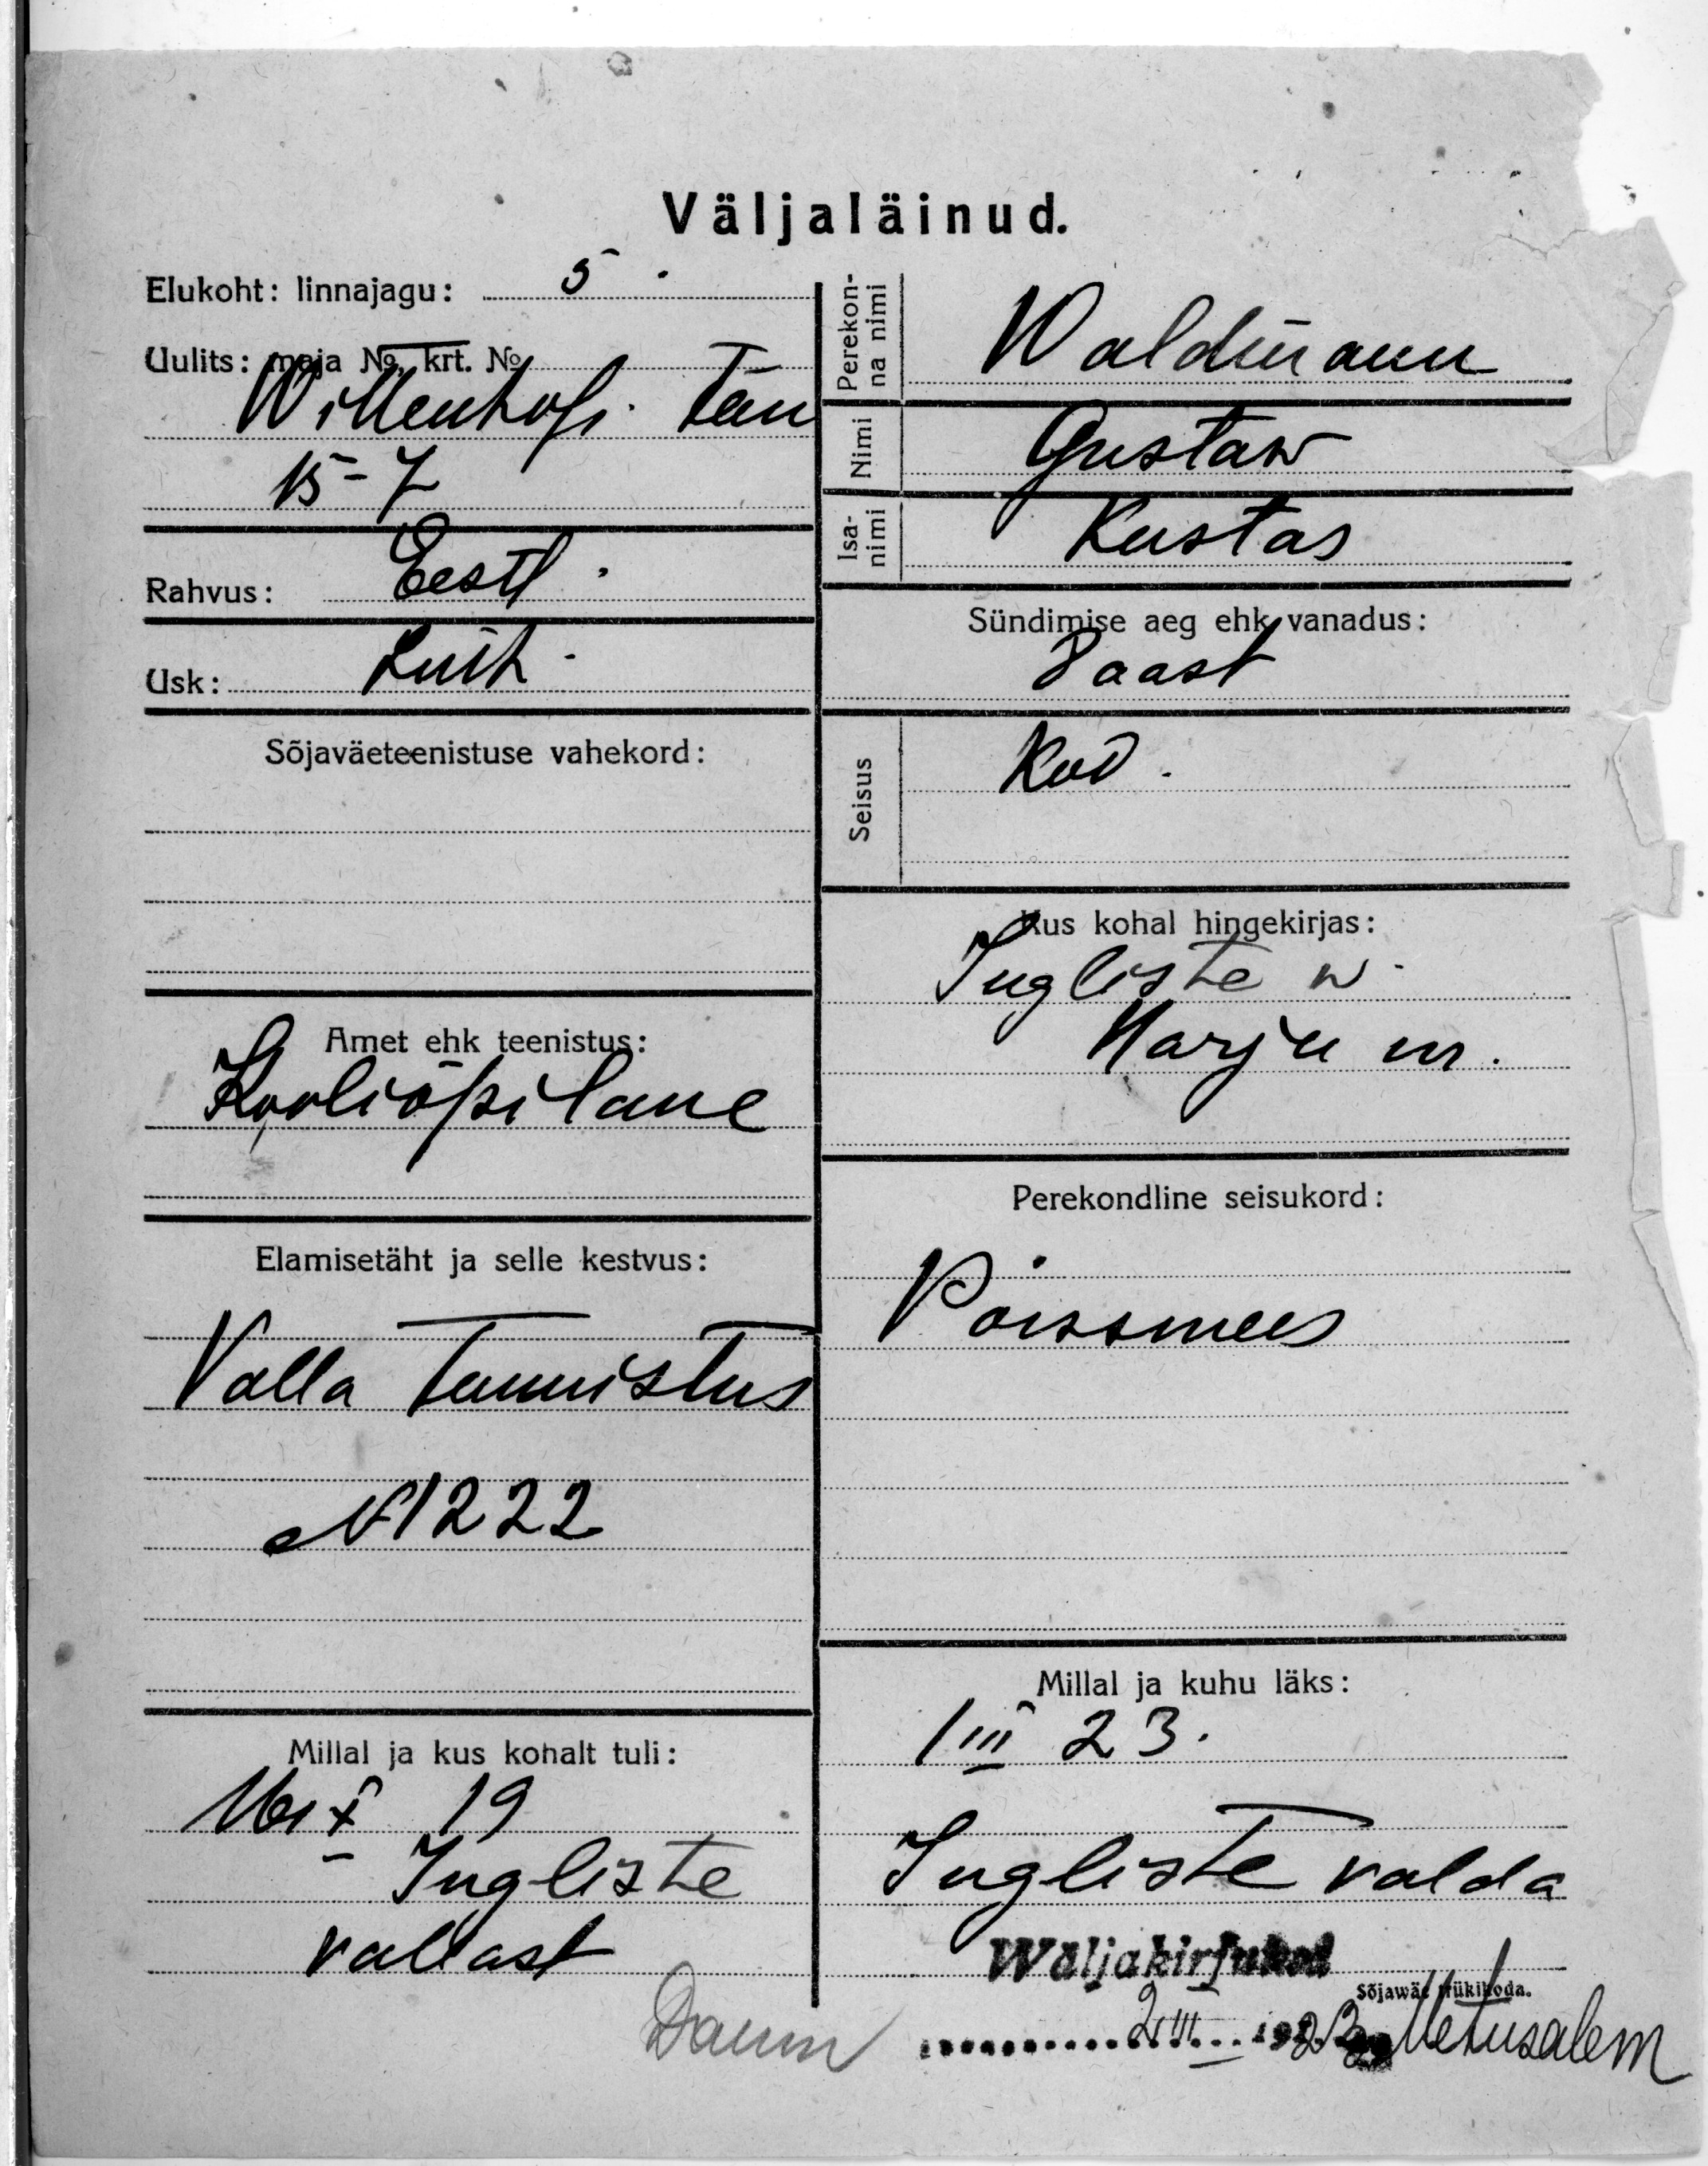 Väljaläinud.
Elukoht: linnajagu: 5.
Uulits: maja No, krt. No
Willenhofi tän
15-7
Rahvus: Eestl.
Usk: Luth.
Sõjaväeteenistuse vahekord:
Amet ehk teenistus:
Kooliõpilane
Elamisetäht ja selle kestvus:
Valla tunnistus
№1222
Millal ja kus kohalt tuli:
19
Ingliste
vallast
Perekon-
na nimi
Waldmann
Nimi
Gustaw
Isa-
nimi
Kustas
Sündimise aeg ehk vanadus:
8 aast
Seisus
Kod.
Kus kohal hingekirjas:
Ingliste w.
Harju m.
Perekondline seisukord:
Poissmees
Millal ja kuhu läks:
1 III 23.
Ingliste valda
Wäljakirjutud
Sõjawäe trükikoda.
2 III 1923 Metusalem
Daum